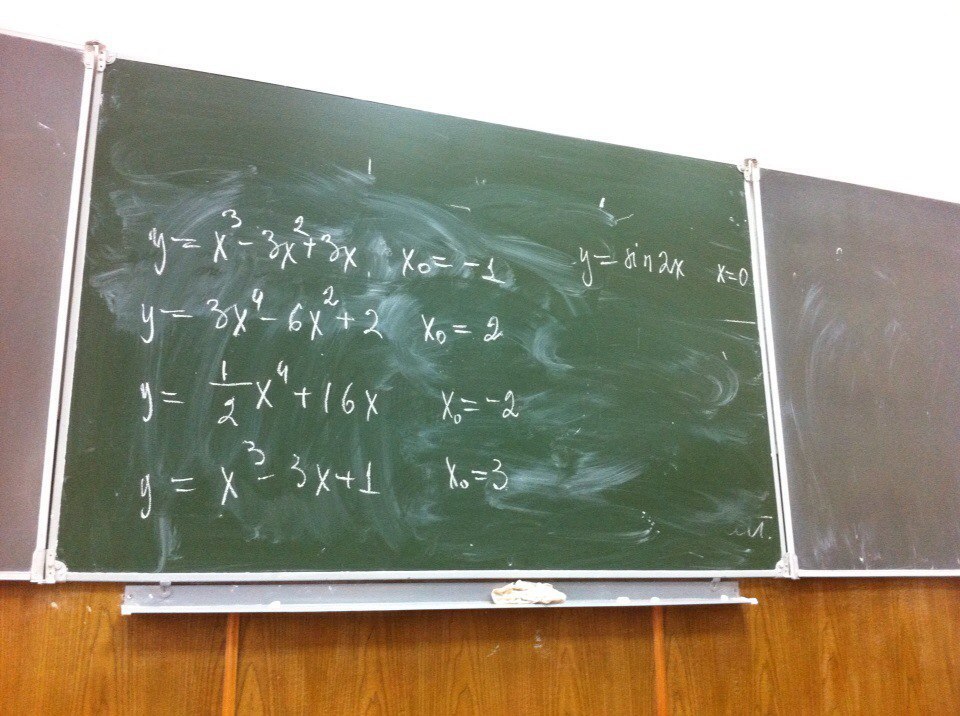 y = x³ - 3x² + 3x x₀ = -1 y = sin 2x x = 0
y = 3x⁴ - 6x² + 2 x₀ = 2
y = 1/2 x⁴ + 16x x₀ = -2
y = x³ - 3x + 1 x₀ = 3